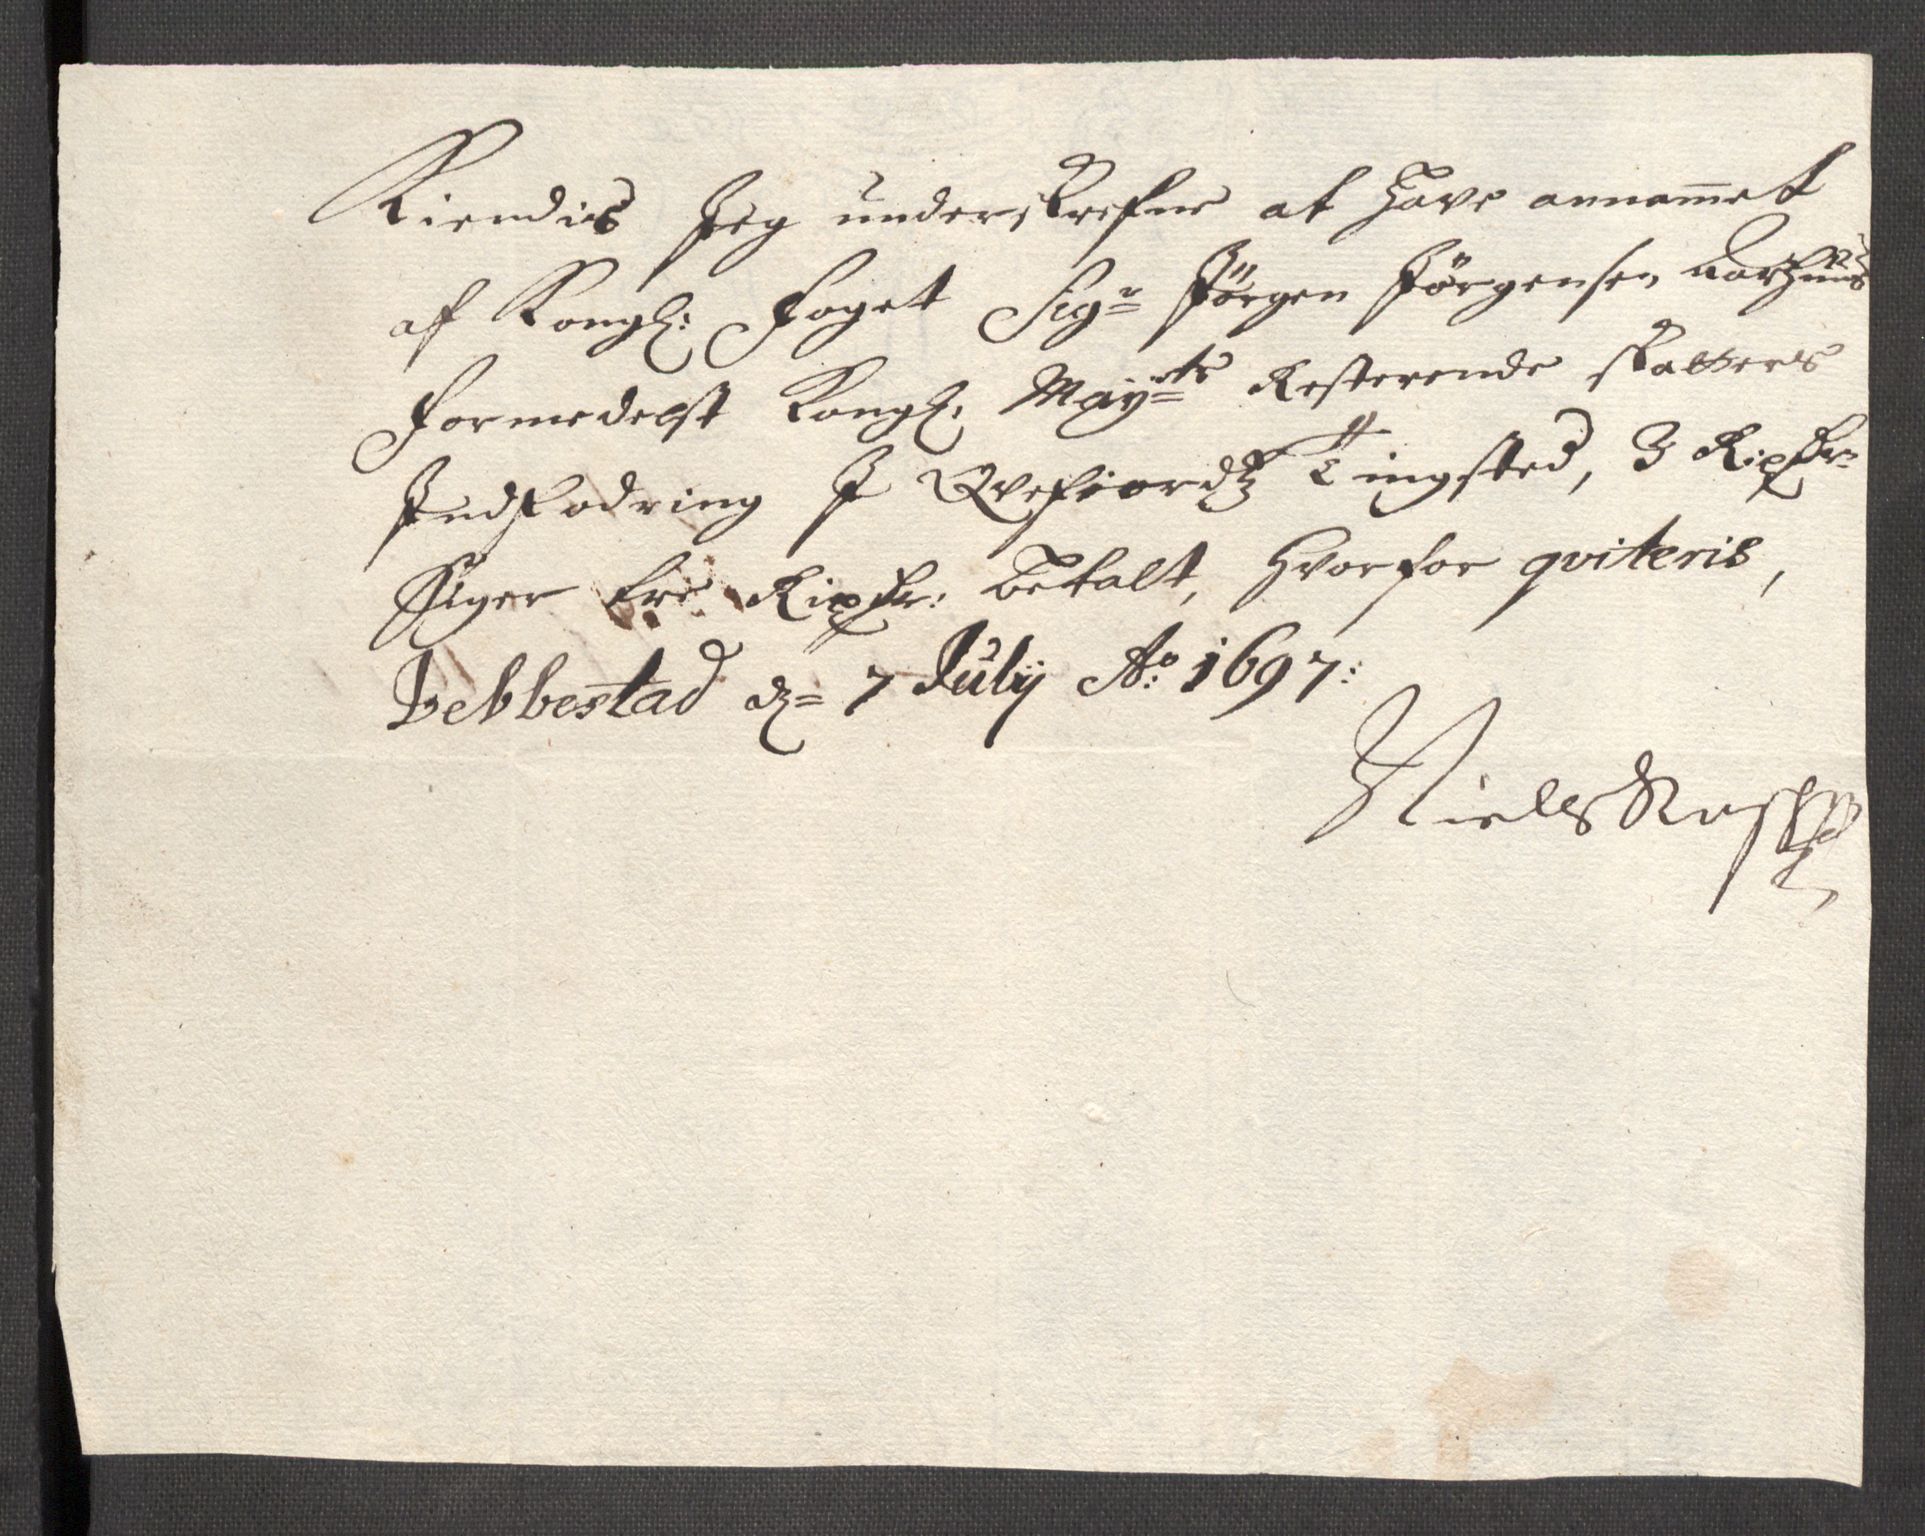 Kiendis Jeg underskrefne at Have annam̅et
af Kongl: Foget Sigr Jörgen Jörgensen Aarhuus
formedelst Kongl. Mayts Resterende skatters
Indfodring J Qvefiordtz Tingsted, 3 Rixdr
Siger tre Rixdr: betalt, Hvorfor qviteris,
Bebbestad d. 7 Julij Ao: 1697:
Niels